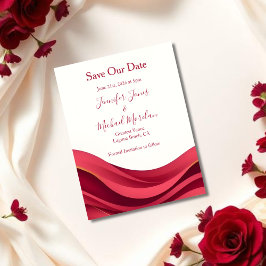 Save Our Date
June 21st, 2024 at 5pm
Jennifer Jones
&
Michael
Laguna Beach, CA
Formal Invitation to Follow